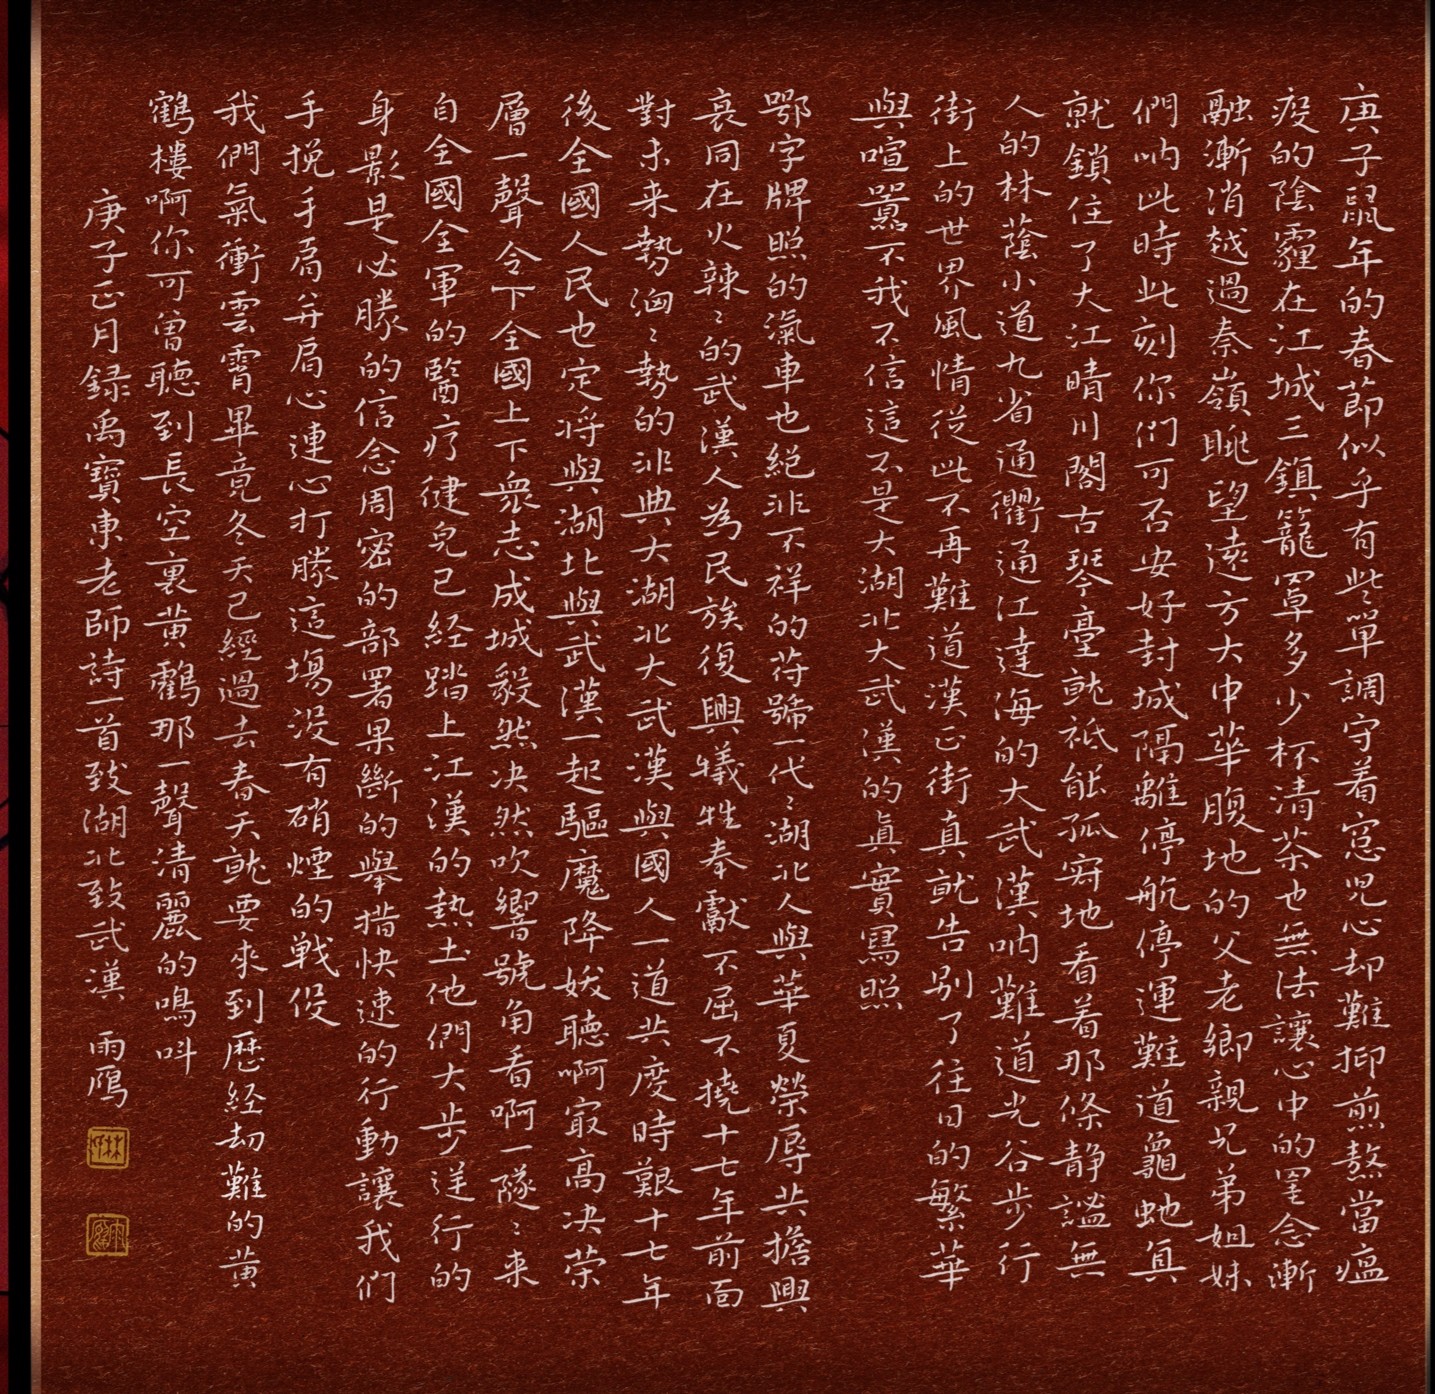 庚子鼠年的春節似乎有些單調守着窓児心却難抑煎熬當瘟
疫的陰霾在江城三鎮籠罩多少杯清茶也無法讓心中的罣念漸
融漸消越過秦嶺眺望遠方大中華腹地的父老鄉親兄弟姐妹
們吶此時此刻你们可否安好封城隔離停航停運難道龜虵真
就鎖住了大江晴川閣古琴臺就祗能孤寂地看着那條静謐無
人的林蔭小道九省通衢通江達海的大武漢吶難道光谷步行
街上的世界風情從此不再難道漢正街真就告别了往日的繁華
與喧囂不我不信這不是大湖北大武漢的真實寫照
鄂字牌照的汽車也絕非不祥的符號一代〻湖北人與華夏榮辱共擔興
衰同在火辣〻的武漢人為民族復興犧牲奉獻不屈不撓十七年前面
對未来勢洶〻勢的非典大湖北大武漢與國人一道共度時艱十七年
後全國人民也定将與湖北與武漢一起驅魔降妖聽啊冣高决荣
層一聲令下全國上下衆志成城毅然决然吹響號角看啊一隊〻来
自全國全軍的醫疗健児已経踏上江漢的熱土他們大步逆行的
身影是必勝的信念周密的部署果断的舉措快速的行動讓我们
手挽手肩并肩心連心打勝這場没有硝煙的戦役
我們氣衝雲霄畢竟冬天已經過去春天就要來到歴経劫難的黄
鶴樓啊你可曾聽到長空裏黄鸖那一聲清麗的鳴叫
庚子正月録禹寶東老師詩一首致湖北致武漢 雨雁